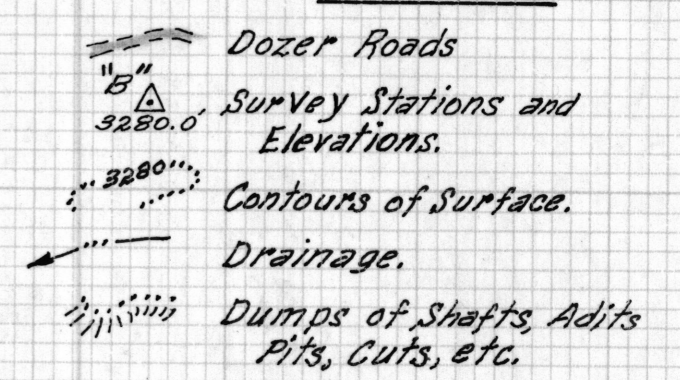 Dozer Roads
"B"
Survey Stations and
3280.0'
Elevations.
3280
Contours of Surface.
Drainage.
Dumps of Shafts, Adits
Pits, Cuts, etc.